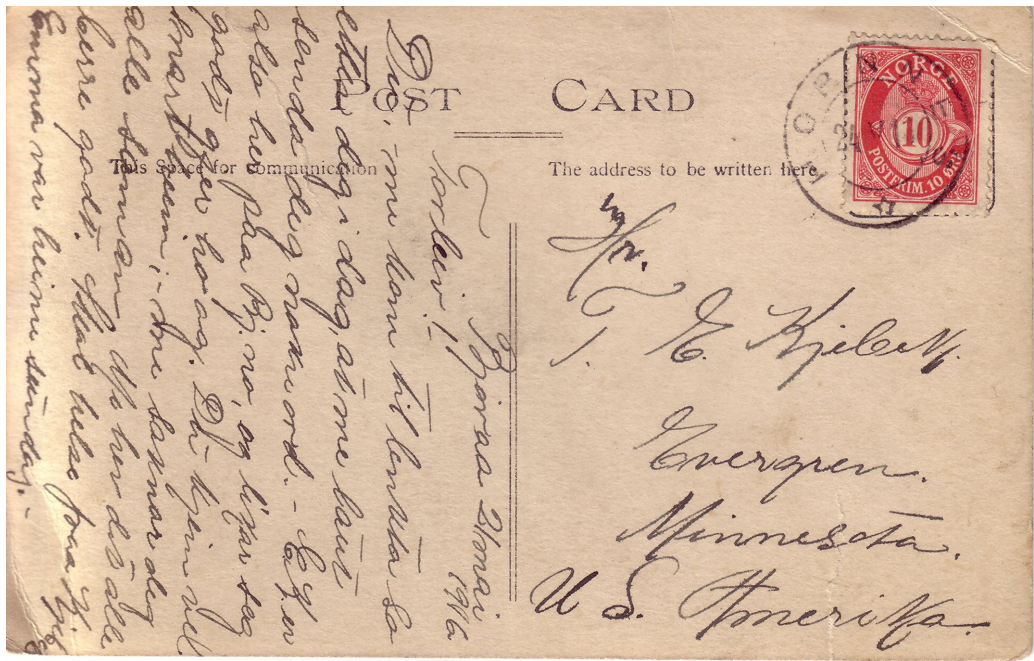 POST CARD
This Space for communication
The address to be written here
NORGE
10
POSTFRIM. 10 ØRE
Hr.
T. E. Kjebek.
Evergren.
Minnesota.
U S. Amerika.
Bjoraa 21 mai
Torleiv!-
Du, me kom til henta so
etter deg i dag, at me laut
senda deg nokre ord. - Eg er
also her paa Bj. no, og likar seg
godt gjer ho og. Du kjem vel
snart heem; - dei saknar deg
alle saman. Dg her dit alle
berre godt. Skal helsa fraa
Emona var heime sundag. -